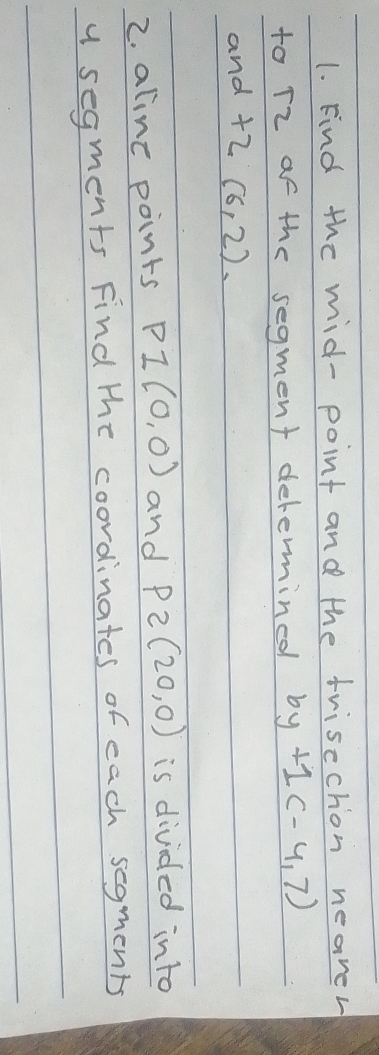 1. Find the mid-point and the trisection nearer
to T2 of the segment determined by t1(-4,7)
and t2 (6,2).
2. aline points P1(0,0) and P2(20,0) is divided into
4 segments Find the coordinates of each segments